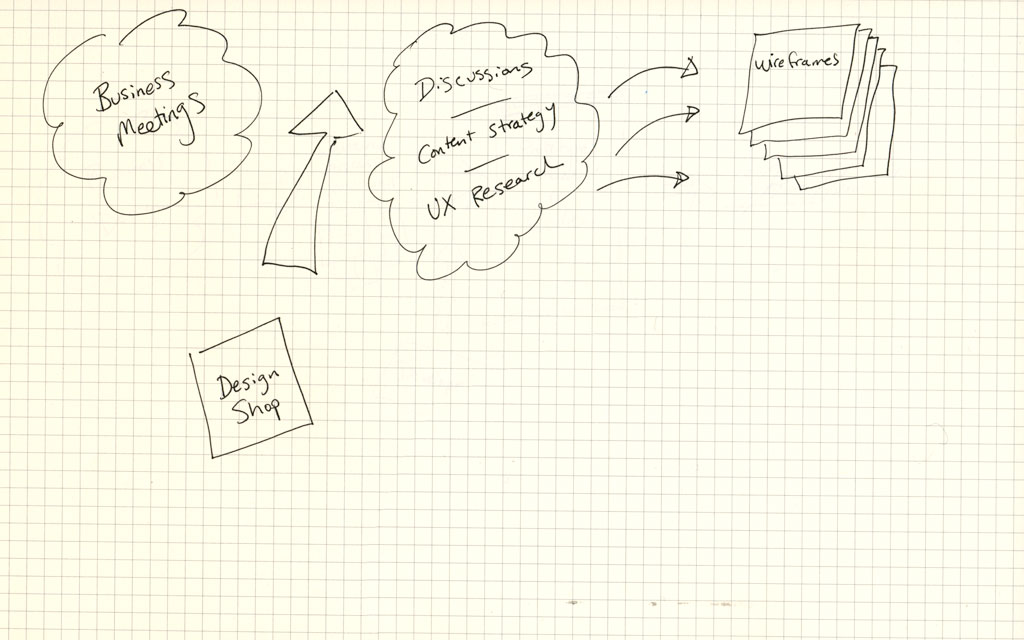 Business
Meetings
Discussions
Content Strategy
UX Research
wireframes
Design
Shop